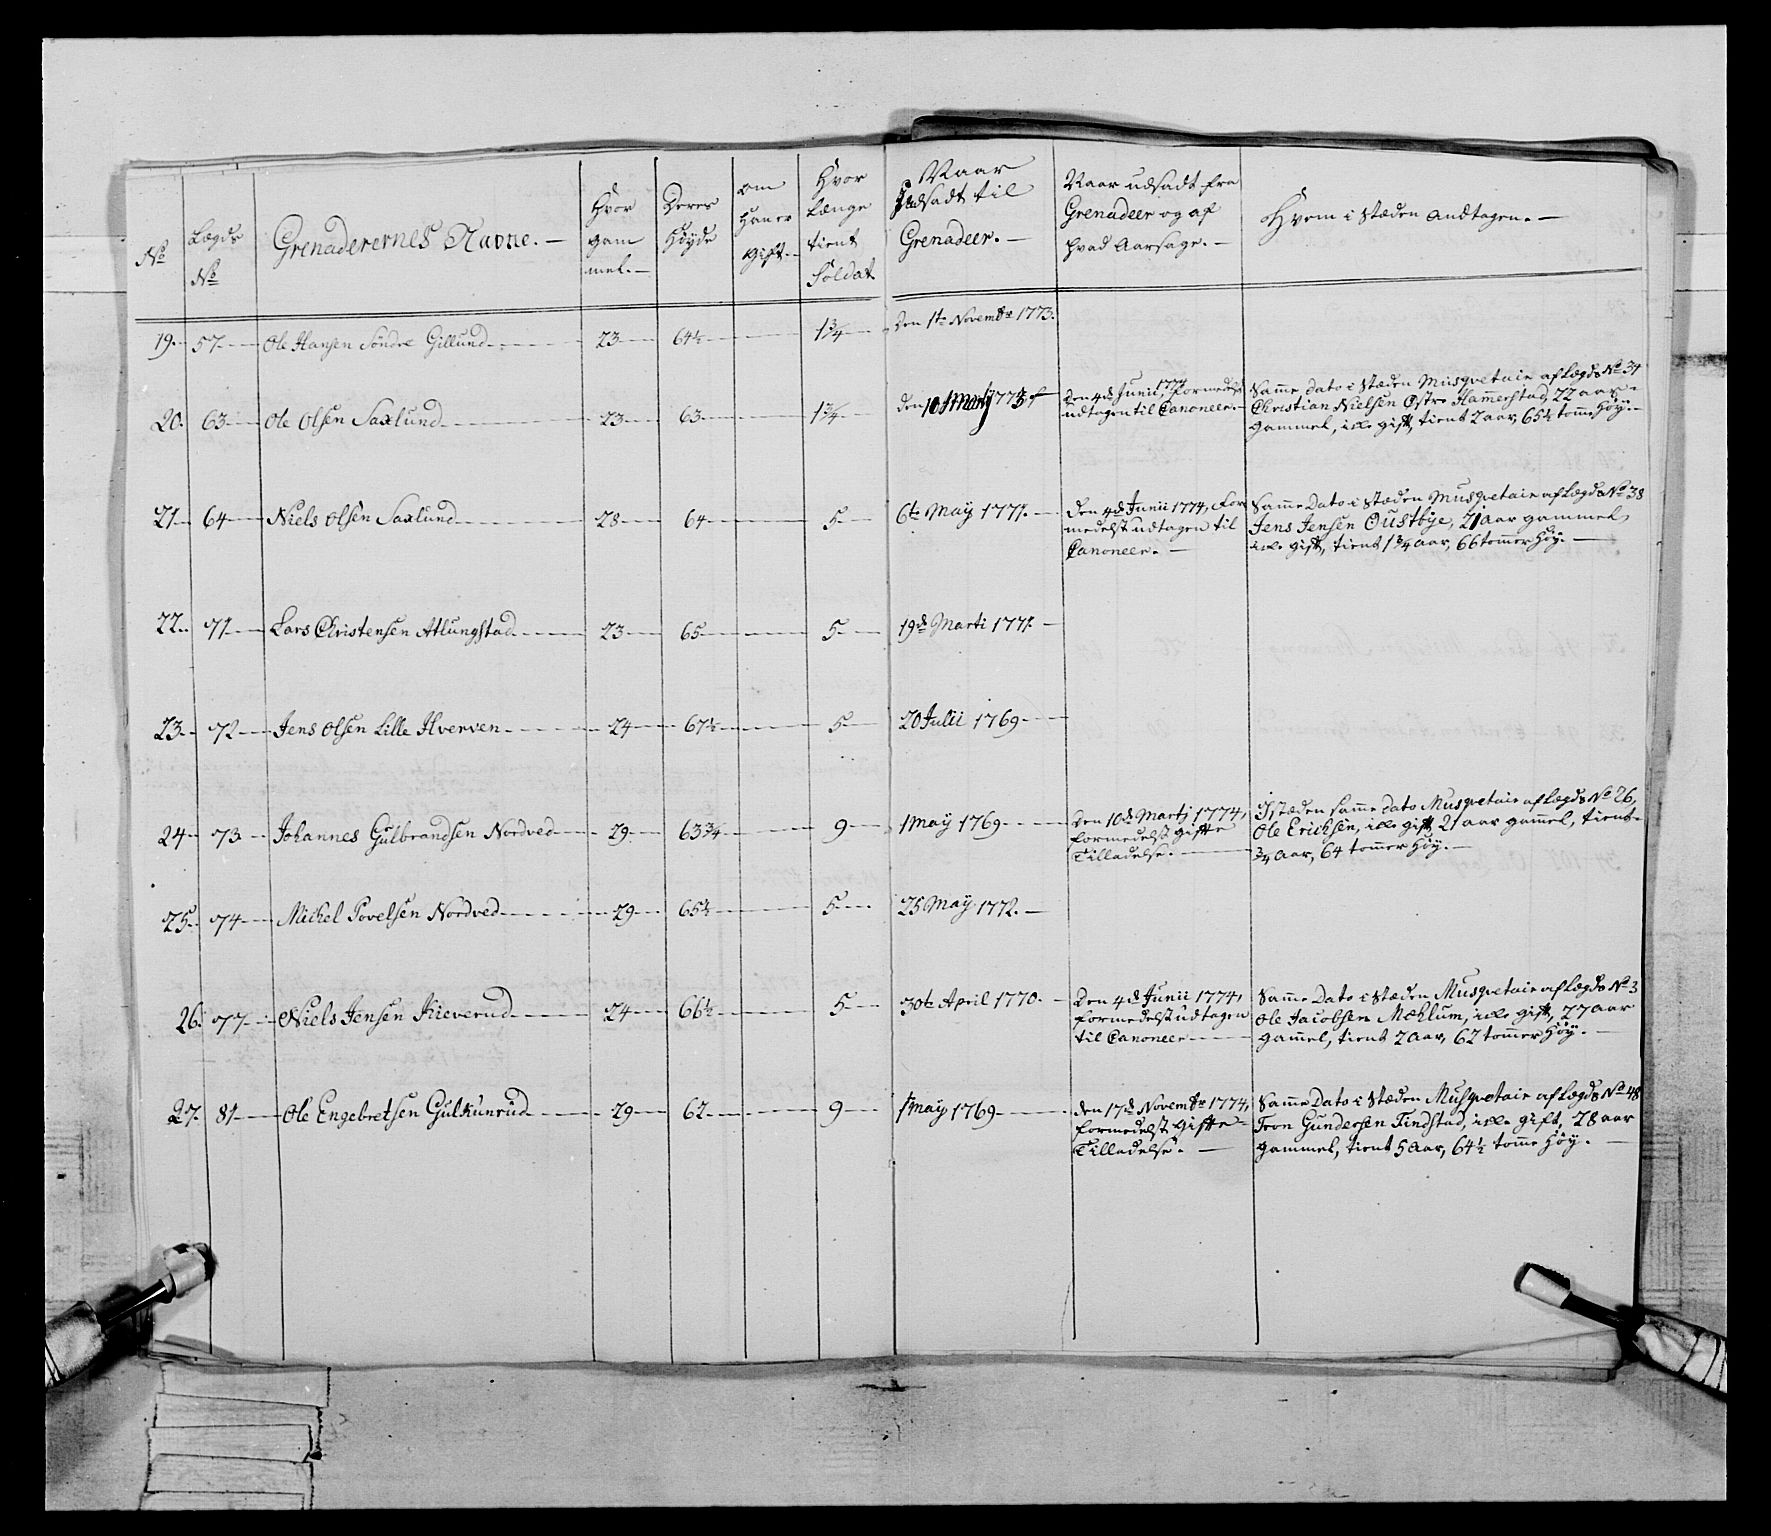 No
Lægds
No
Grenaderernes Navne. —
Hvor
gam
mel. —
Deres
Höyde
om
Han er
gift. —
Hvor
længe
tient
Soldat
Naar
Udsadt til
Grenadeer. —
Naar udsadt fra
Grenadeer og af
hvad Aarsage. —
Hvem i Stæden andtagen. —
19. 57 Ole Hansen Söndre Gillund 23 64½ 1¾ Den 1te Novembr 1773.
20. 63 Ole Olsen Saxlund 23 63 1¾ den 10 Martj 1773
Den 4de Junii 1774 formedelst
udtagen til Canoneer. —
Samme Dato i Stæden Musqvetair af Lægds No 34
Christian Nielsen Østre Hamerstad, 22 aar
gammel, icke gift, tient 2 aar, 65½ tomme Höy. —
21 64 Niels Olsen Saxlund 28 64 5 6te May 1771. —
Den 4de Junii 1774, For
medelst udtagen til
Canoneer. —
Samme Dato i Stæden Musqvetair af Lægds No 38
Jens Jensen Oustbye, 21 aar gammel,
icke gift, tient 1¾ aar, 66 tommer Höy. —
22. 71 Lars Christensen Atlungstad 23 65 5 19de Marti 1771. —
23. 72 Jens Olsen Lille Hverven 24 67½ 5 20 Julii 1769
24 73 Johannes Gulbrandsen Nordved 29 63¾ 9 1 May 1769
Den 10de Martj 1774,
formedelst gifte
Tilladelse. —
I stæden samme dato Musqvetair af Lægds No 26,
Ole Erichsen, icke gift, 21 aar gammel, tient
¾ Aar, 64 tommer Höy. —
25. 74 Michel Povelsen Nordved 29 65½ 5 25 May 1772. —
26. 77 Niels Jensen Kieverud 24 66½ 5 30te April 1770.
Den 4de Junii 1774,
formedelst udtagen
til Canoneer
Samme Dato i Stæden Musqvetair af Lægds No 3
Ole Jacobsen Mæhlum, icke gift, 27 aar
gammel, tient 2 Aar, 62 tommer Höy. —
27. 81 Ole Engebretsen Gulkunrud 29 62 9 1 may 1769
den 17de Novembr 1774,
formedelst Gifte
Tilladelse. —
Samme Dato i Stæden Musqvetair af Lægds No 48
Tron Gundersen Findstad, icke gift, 28 aar
gammel, tient 5 Aar, 64½ tomme Höy. —